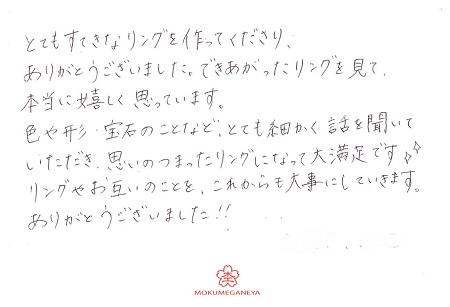 とてもすてきなリングを作ってくださり、
ありがとうございました。できあがったリングを見て、
本当に嬉しく思っています。
色や形・宝石のことなど、とても細かく話を聞いて
いただき、思いのつまったリングになって大満足です
リングやお互いのことを、これからも大事にしていきます。
ありがとうございました!!
MOKUMEGANEYA